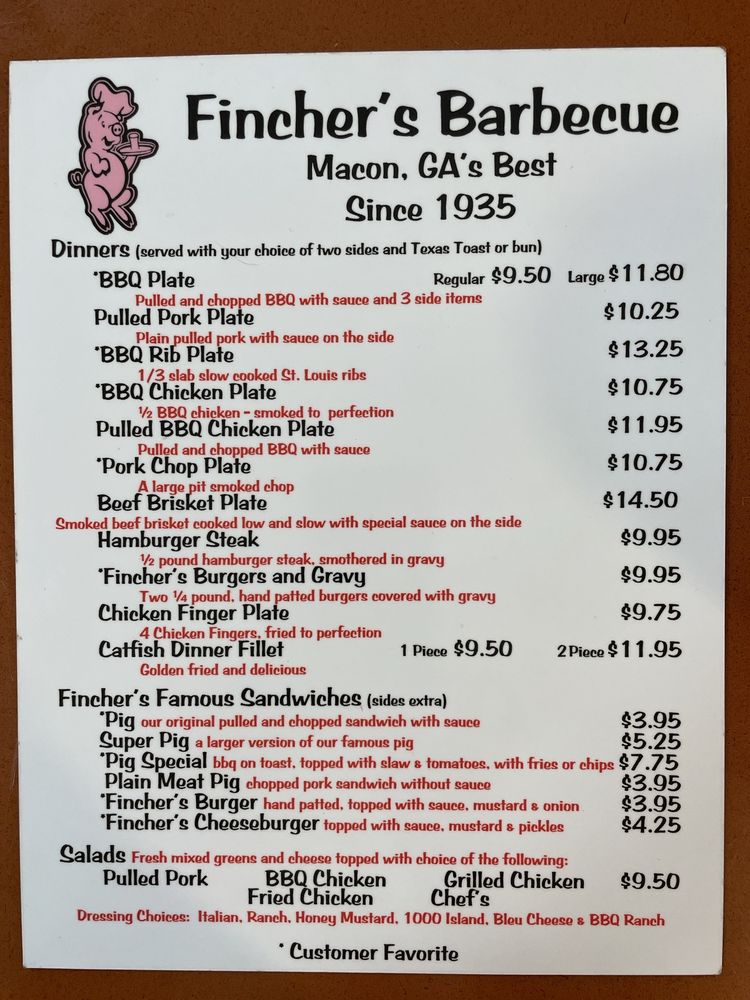 Fincher's Barbecue
Macon, GA's Best
Since 1935
Dinners (served with your choice of two sides and Texas Toast or bun)
*BBQ Plate Regular $9.50 Large $11.80
Pulled and chopped BBQ with sauce and 3 side items
Pulled Pork Plate $10.25
Plain pulled pork with sauce on the side
*BBQ Rib Plate $13.25
1/3 slab slow cooked St. Louis ribs
*BBQ Chicken Plate $10.75
½ BBQ chicken - smoked to perfection
Pulled BBQ Chicken Plate $11.95
Pulled and chopped BBQ with sauce
*Pork Chop Plate $10.75
A large pit smoked chop
Beef Brisket Plate $14.50
Smoked beef brisket cooked low and slow with special sauce on the side
Hamburger Steak $9.95
½ pound hamburger steak, smothered in gravy
*Fincher's Burgers and Gravy $9.95
Two ¼ pound, hand patted burgers covered with gravy
Chicken Finger Plate $9.75
4 Chicken Fingers, fried to perfection
Catfish Dinner Fillet 1 Piece $9.50 2 Piece $11.95
Golden fried and delicious
Fincher's Famous Sandwiches (sides extra)
*Pig our original pulled and chopped sandwich with sauce $3.95
Super Pig a larger version of our famous pig $5.25
*Pig Special bbq on toast, topped with slaw & tomatoes, with fries or chips $7.75
Plain Meat Pig chopped pork sandwich without sauce $3.95
*Fincher's Burger hand patted, topped with sauce, mustard & onion $3.95
*Fincher's Cheeseburger topped with sauce, mustard & pickles $4.25
Salads Fresh mixed greens and cheese topped with choice of the following:
Pulled Pork BBQ Chicken Grilled Chicken $9.50
Fried Chicken Chef's
Dressing Choices: Italian, Ranch, Honey Mustard, 1000 Island, Bleu Cheese & BBQ Ranch
* Customer Favorite